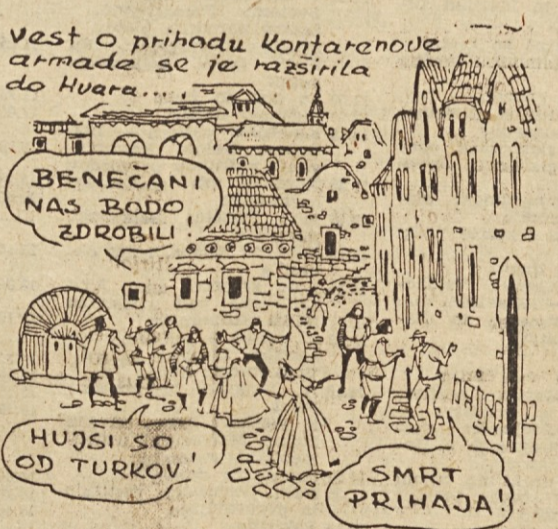 Vest o prihodu Kontarenove
armade se je razširila
do Hvara...
BENEČANI
NAS BODO
ZDROBILI!
HUJŠI SO
OD TURKOV!
SMRT
PRIHAJA!